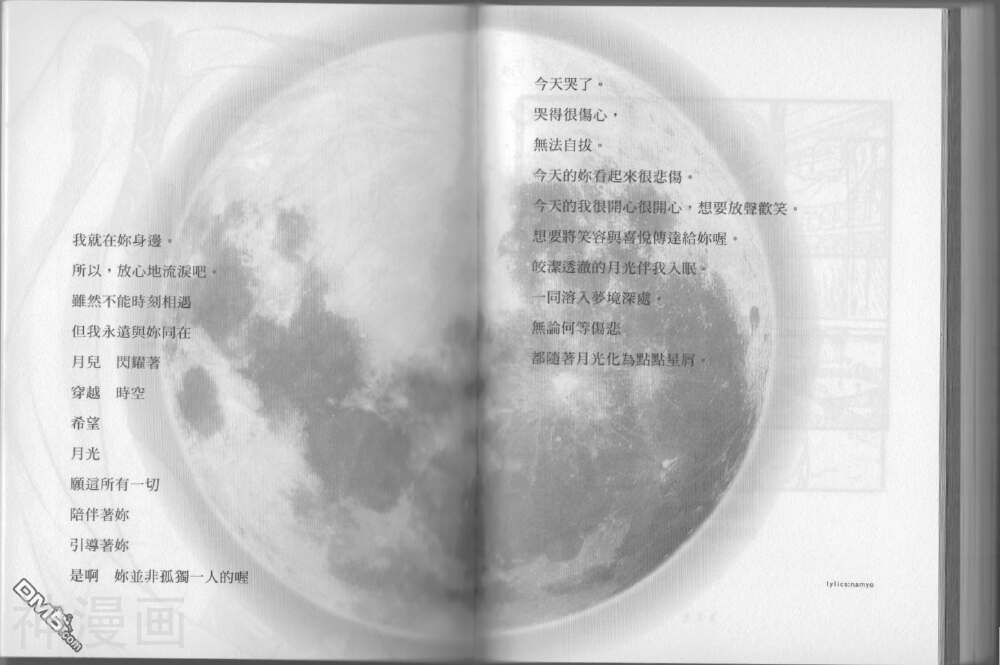 我就在妳身邊。
所以，放心地流淚吧。
雖然不能時刻相遇
但我永遠與妳同在
月兒　閃耀著
穿越　時空
希望
月光
願這所有一切
陪伴著妳
引導著妳
是啊　妳並非孤獨一人的喔
今天哭了。
哭得很傷心，
無法自拔。
今天的妳看起來很悲傷。
今天的我很開心很開心，想要放聲歡笑。
想要將笑容與喜悅傳達給妳喔。
皎潔透澈的月光伴我入眠。
一同溶入夢境深處，
無論何等傷悲
都隨著月光化為點點星屑。
lylics:namyo
DM5.com
神漫画